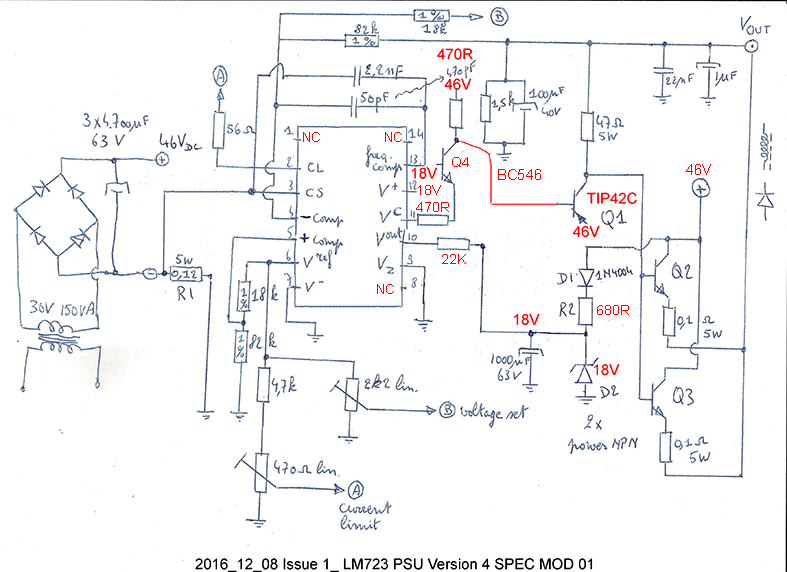 B
1%
18k
82k
1%
VOUT
470R
470pF
46V
2,2nF
50pF
A
3 x 4.700µF
63 V
46VDC
56Ω
1 NC
NC 14
freq. comp
13
2 CL
3 CS
V+ 12
4 - comp
VC 11
5 + comp
Vout 10
6 Vref
VZ 9
7 V-
NC 8
18V
18V
470R
Q4
BC546
1,5k
100µF
40V
22µF
1µF
47Ω
5W
TIP42C
Q1
46V
46V
5W
0,12
R1
30V 150VA
1%
18k
1%
82k
22K
18V
D1
1N4004
R2
680R
Q2
0,1Ω
5W
1000µF
63V
18V
D2
Q3
2x
power NPN
0,1Ω
5W
4,7k
2k2 lin.
B voltage set
470Ω lin.
A
current
limit
2016_12_08 Issue 1_ LM723 PSU Version 4 SPEC MOD 01